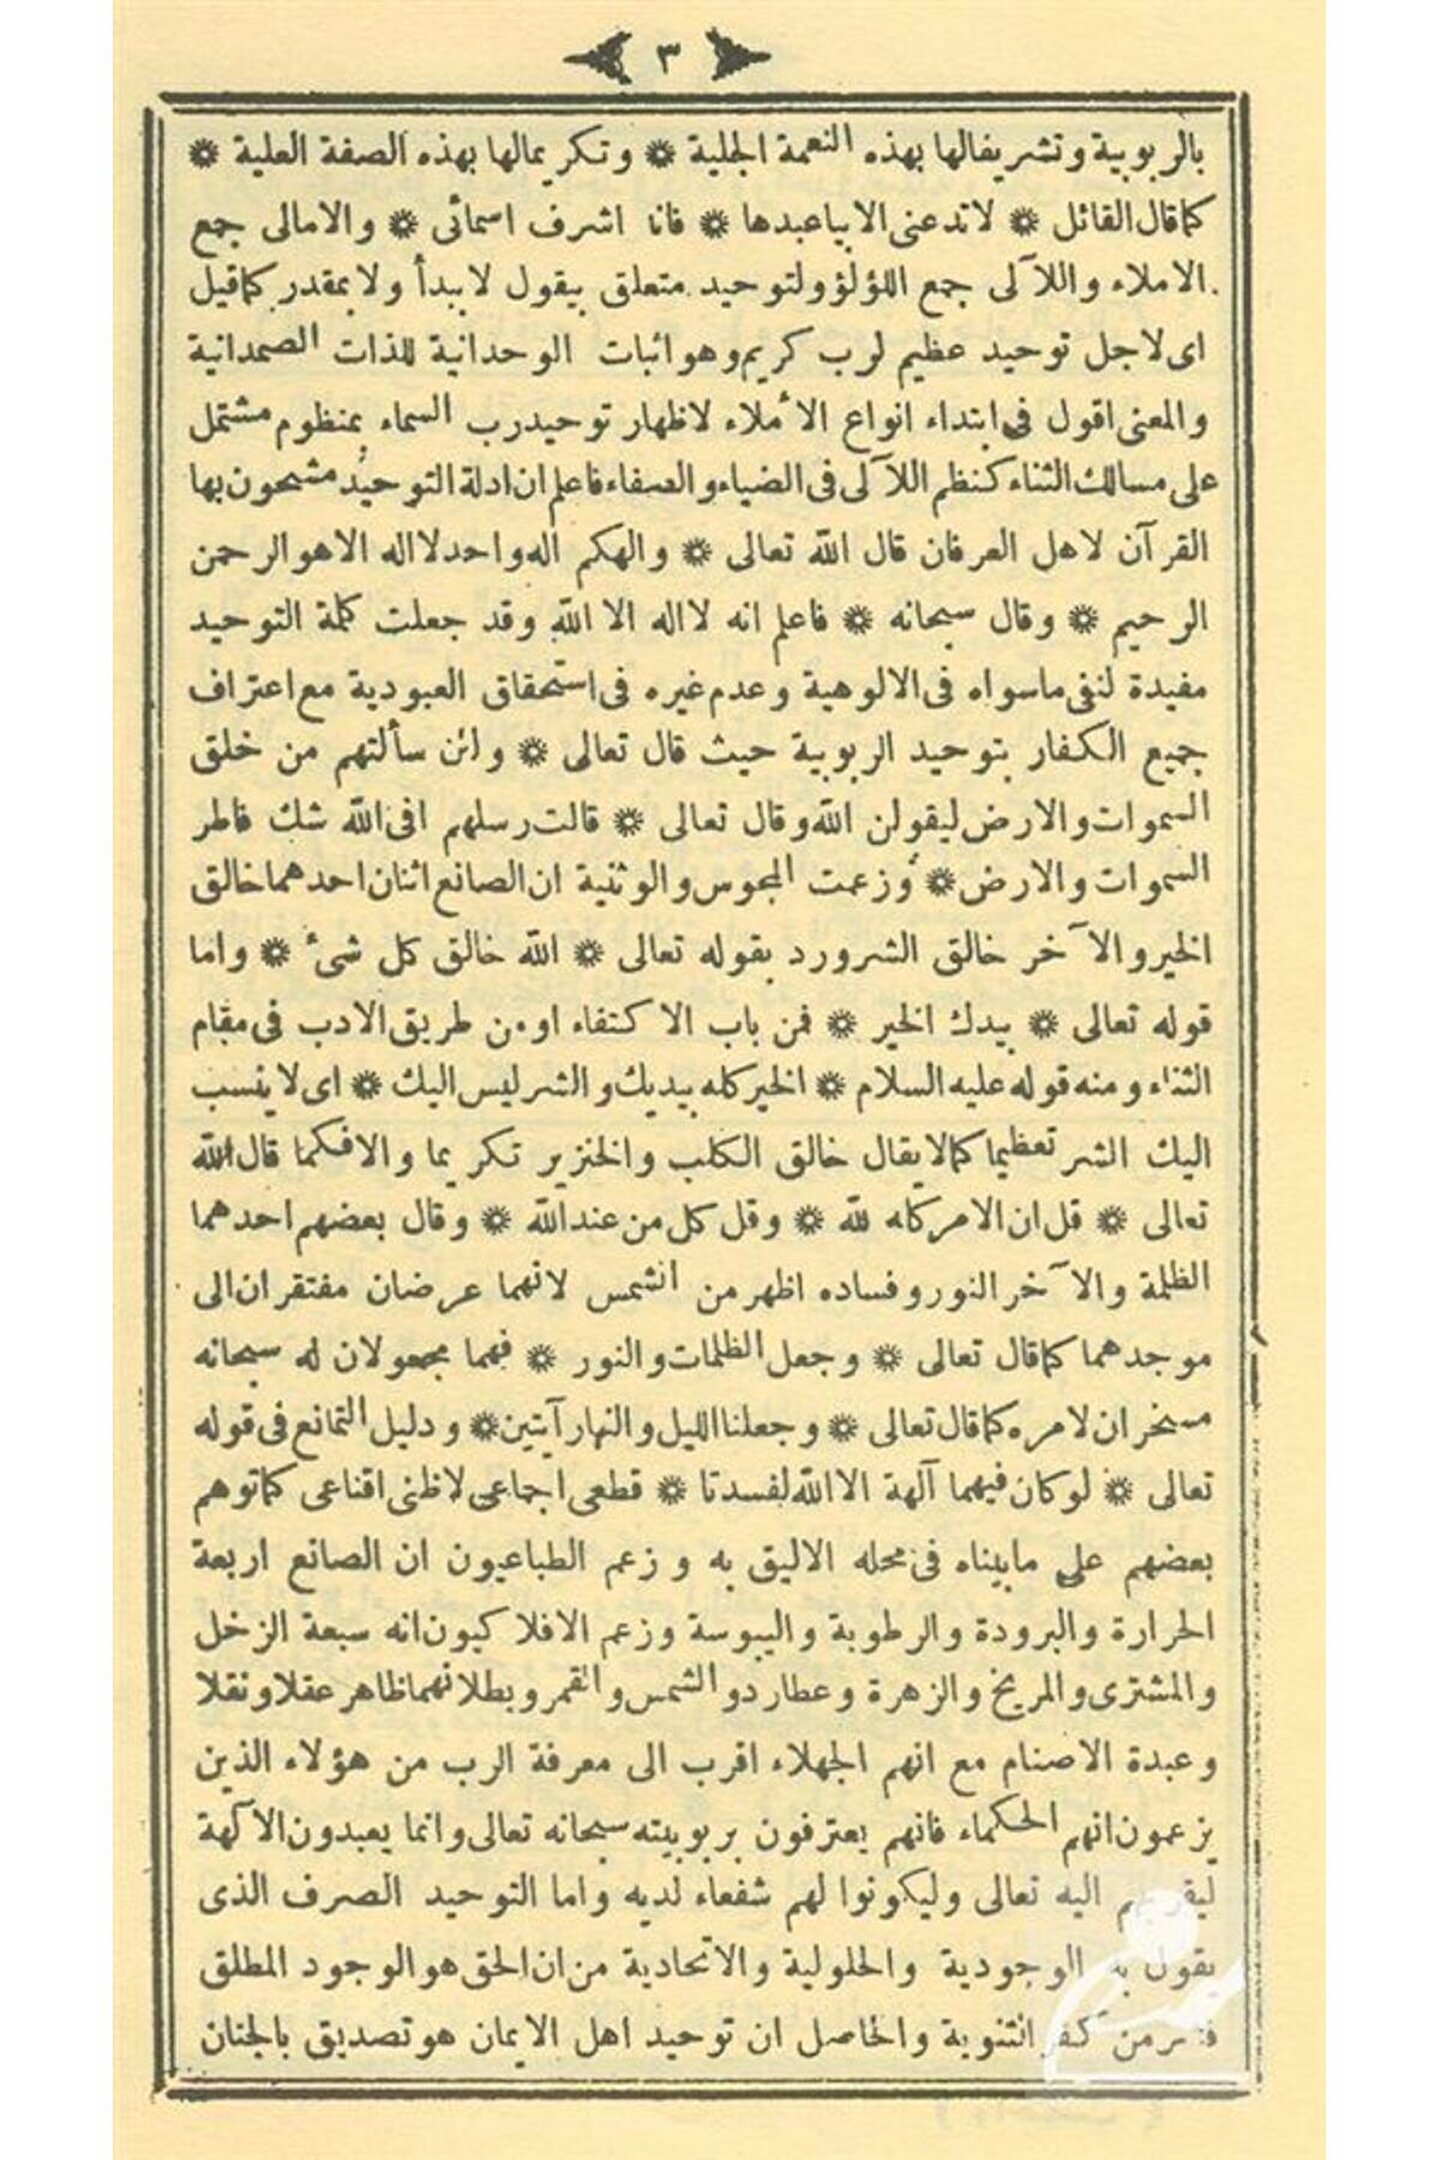 ٣
بالربوبية وتشريفا لها بهذه النعمة الجلية ❋ وتكريما لها بهذه الصفة العلية ❋
كما قال القائل ❋ لا تدعنى الا بيا عبدها ❋ فانا اشرف اسمائى ❋ والامالى جمع
الاملاء واللآلى جمع اللؤلؤ ولتوحيد متعلق بيقول لا ببدأ ولا بمقدر كما قيل
اى لاجل توحيد عظيم لرب كريم وهو اثبات الوحدانية للذات الصمدانية
والمعنى اقول فى ابتداء انواع الأملاء لاظهار توحيد رب السماء بمنظوم مشتمل
على مسالك الثناء كنظم اللآلى فى الضياء والصفاء فاعلم ان ادلة التوحيد مشحون بها
القرآن لاهل العرفان قال الله تعالى ❋ والهكم اله واحد لا اله الا هو الرحمن
الرحيم ❋ وقال سبحانه ❋ فاعلم انه لا اله الا الله وقد جعلت كلمة التوحيد
مفيدة لنفى ما سواه فى الالوهية وعدم غيره فى استحقاق العبودية مع اعتراف
جميع الكفار بتوحيد الربوبية حيث قال تعالى ❋ ولئن سألتهم من خلق
السموات والارض ليقولن الله وقال تعالى ❋ قالت رسلهم افى الله شك فاطر
السموات والارض ❋ وزعمت المجوس والوثنية ان الصانع اثنان احدهما خالق
الخير والآخر خالق الشر ورد بقوله تعالى ❋ الله خالق كل شئ ❋ واما
قوله تعالى ❋ بيدك الخير ❋ فمن باب الاكتفاء او من طريق الادب فى مقام
الثناء ومنه قوله عليه السلام ❋ الخير كله بيديك والشر ليس اليك ❋ اى لا ينسب
اليك الشر تعظيما كما لا يقال خالق الكلب والخنزير تكريما والا فكما قال الله
تعالى ❋ قل ان الامر كله لله ❋ وقل كل من عند الله ❋ وقال بعضهم احدهما
الظلمة والآخر النور وفساده اظهر من الشمس لانهما عرضان مفتقران الى
موجدهما كما قال تعالى ❋ وجعل الظلمات والنور ❋ فهما مجعولان له سبحانه
مسخران لامره كما قال تعالى ❋ وجعلنا الليل والنهار آيتين ❋ ودليل التمانع فى قوله
تعالى ❋ لو كان فيهما آلهة الا الله لفسدتا ❋ قطعى اجماعى لا ظنى اقناعى كما توهم
بعضهم على ما بيناه فى محله الاليق به وزعم الطباعيون ان الصانع اربعة
الحرارة والبرودة والرطوبة واليبوسة وزعم الافلاكيون انه سبعة الزحل
والمشترى والمريخ والزهرة وعطارد والشمس والقمر وبطلانهما ظاهر عقلا ونقلا
وعبدة الاصنام مع انهم الجهلاء اقرب الى معرفة الرب من هؤلاء الذين
يزعمون انهم الحكماء فانهم يعترفون بربوبيته سبحانه تعالى وانما يعبدون الآلهة
ليقربهم اليه تعالى وليكونوا لهم شفعاء لديه واما التوحيد الصرف الذى
يقول به الوجودية والحلولية والاتحادية من ان الحق هو الوجود المطلق
من كفر الثنوية والحاصل ان توحيد اهل الايمان هو تصديق بالجنان